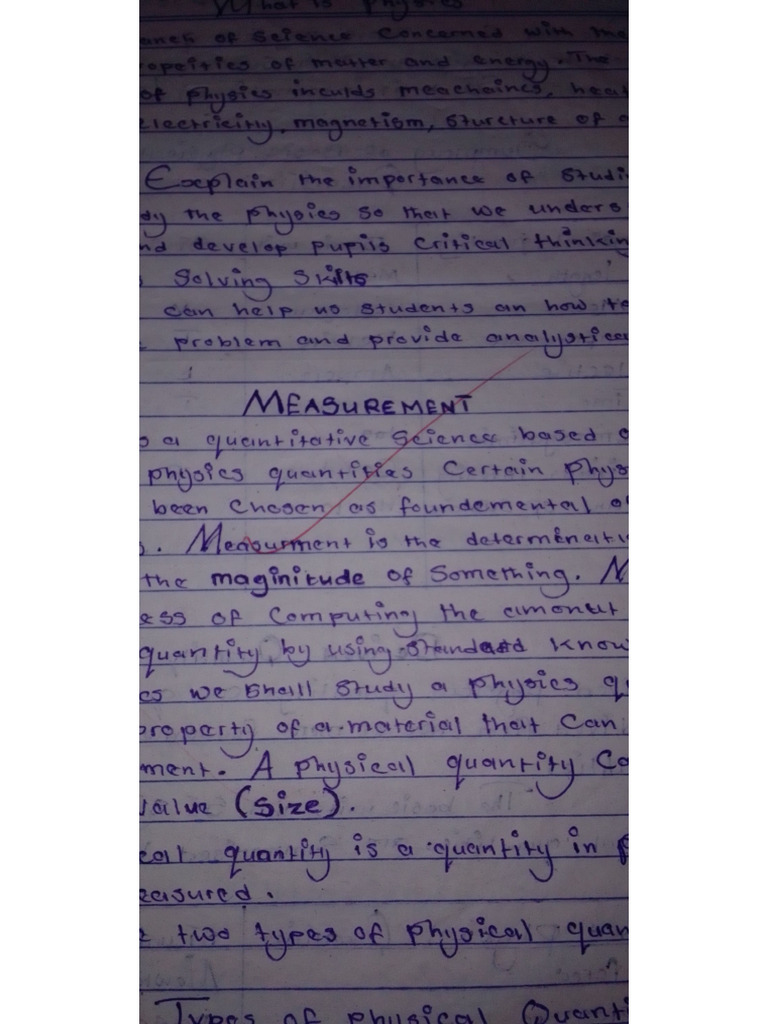 What is physics
anch of science concerned with the
opeities of matter and energy. The
of physics inculds meachaincs, heat
electricity, magnetism, sturcture of a
Explain the importance of studi
dy the physics so that we unders
nd develop pupils critical thinkin
Solving Skills
can help us students an how to
problem and provide analystical
MEASUREMENT
s a quantitative science based o
physics quantities Certain phys
been chosen as foundemental o
s. Measurment is the determenati
the maginitude of Something. M
ess of Computing the amonut
quantity by using standard know
cs we shall study a physics qu
property of a material that can
ment. A physical quantity Co
value (Size).
cal quantity is a quantity in p
easured.
e two types of physical quan
Types of physical Quanti